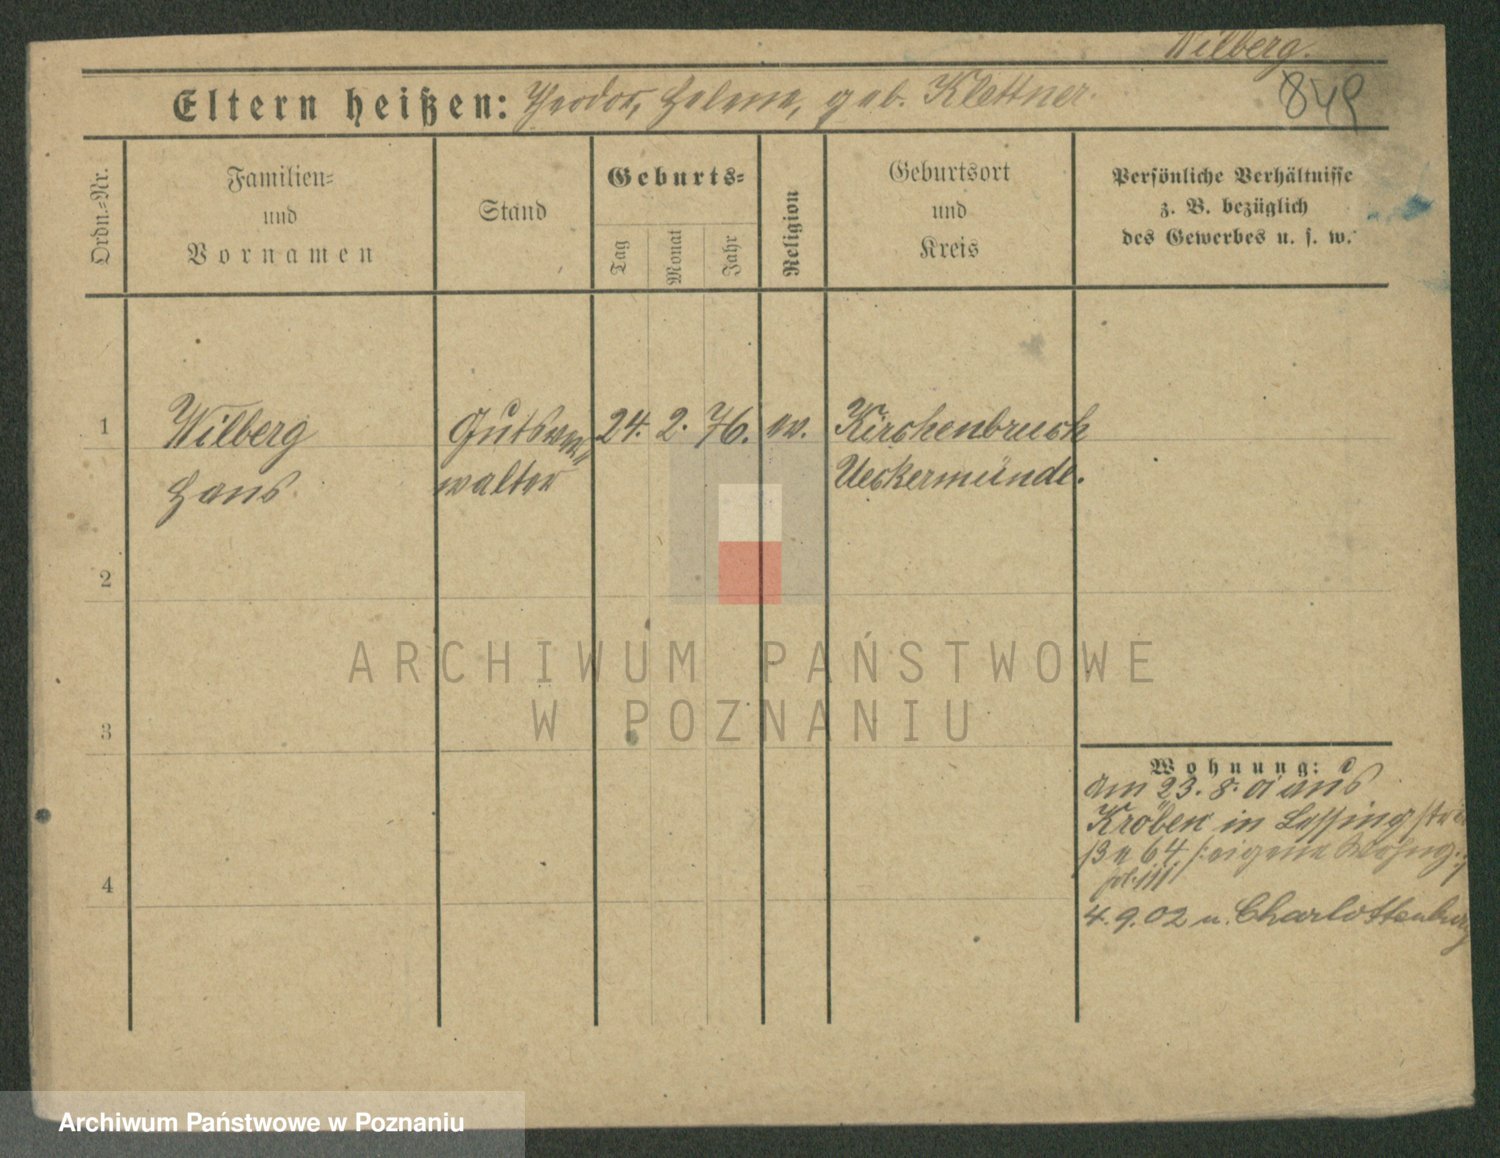 Wilberg.
849
Eltern heißen: Theodor, Helene, geb. Klettner.
Ordn.=Nr.
Familien=
und
Vornamen
Stand
Geburts=
Tag
Monat
Jahr
Religion
Geburtsort
und
Kreis
Persönliche Verhältnisse
z. B. bezüglich
des Gewerbes u. s. w.
1 Wilberg Gutsver= 24. 2. 76. ev. Kirchenbruch
Hans walter Ueckermünde.
2
3
4
Wohnung:
am 23. 8. 01 aus
Kröben in Lessingstr
eigene Wohng.
4. 9. 02 n. Charlottenburg
ARCHIWUM PAŃSTWOWE
W POZNANIU
Archiwum Państwowe w Poznaniu